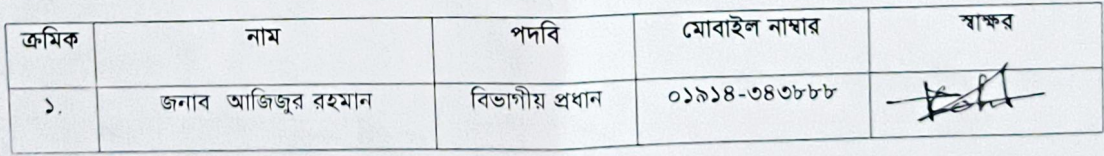 ক্রমিক নাম পদবি মোবাইল নাম্বার স্বাক্ষর
১. জনাব আজিজুর রহমান বিভাগীয় প্রধান ০১৯১৪-৩৪৩৮৮৮